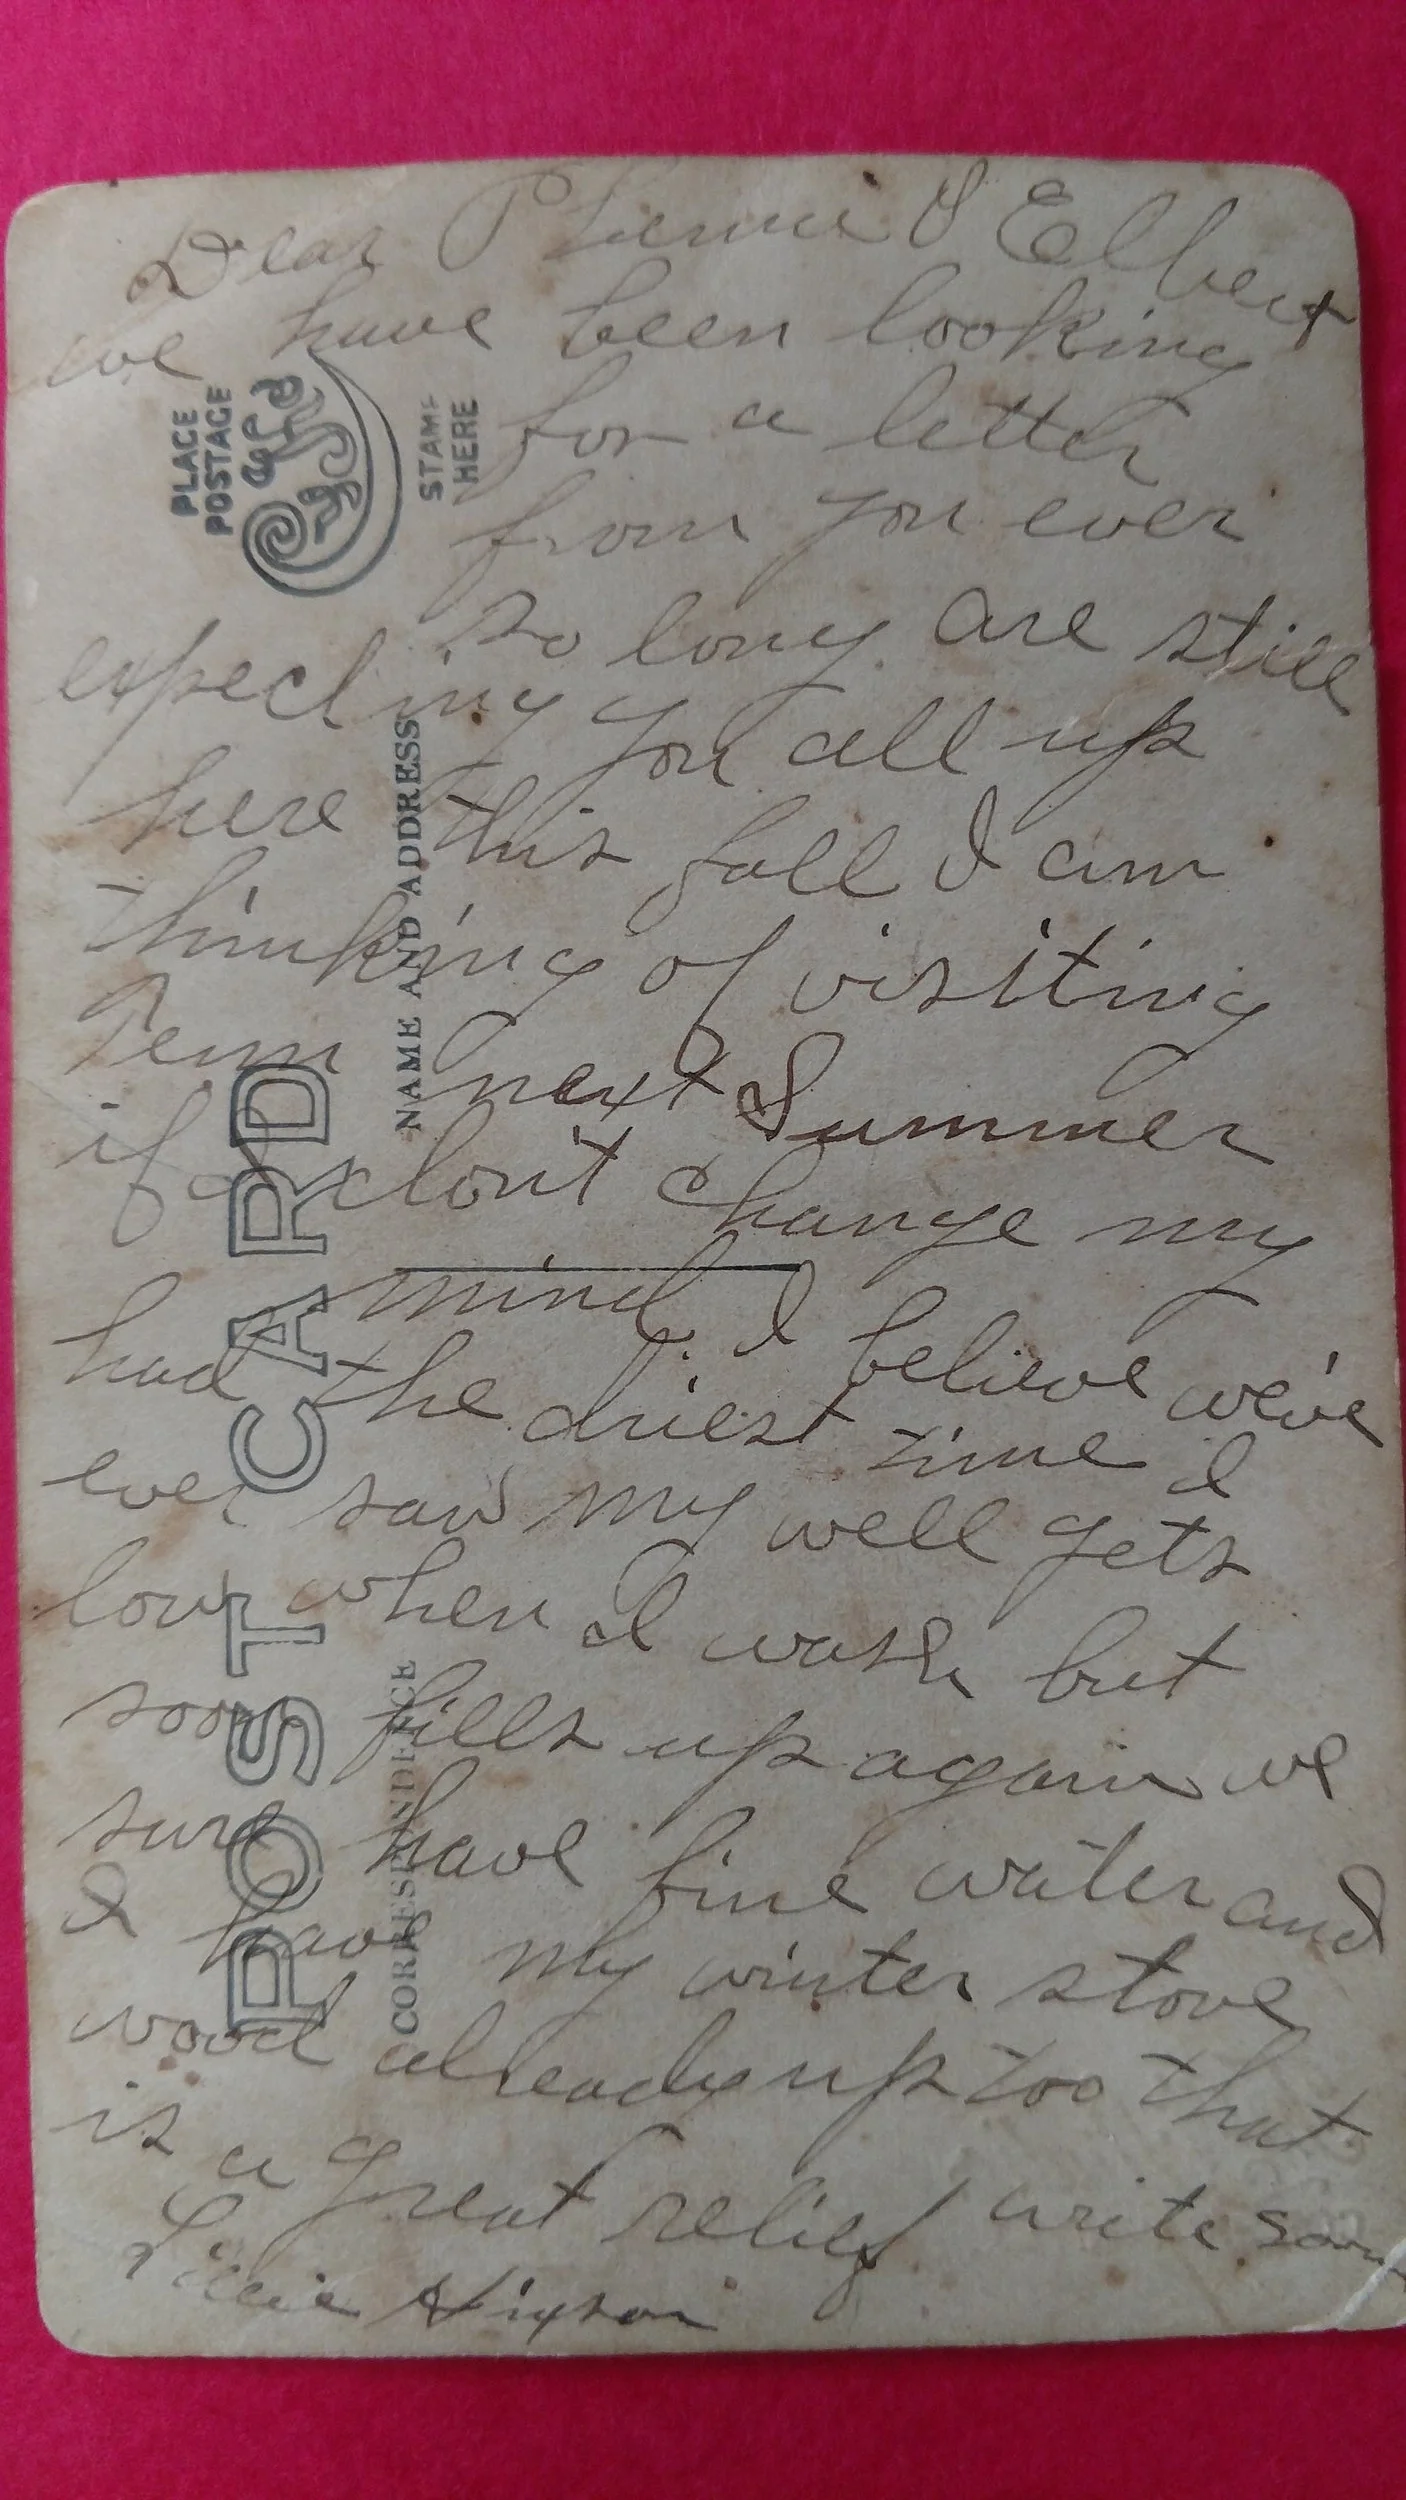 Dear & Elbert
we have been looking
for a letter
from you ever
so long. are still
expecting you all up
here this fall I am
thinking of visiting
Tenn next Summer
if I dont change my
mind. I believe we've
had the driest time I
ever saw my well gets
low when I wash but
soon fills up again we
sure have fine water and
I have my winter stove
wood already up too that
is a great relief write soon
Lillie Hixson
PLACE
POSTAGE
STAMP
HERE
POST CARD
NAME AND ADDRESS
CORRESPONDENCE